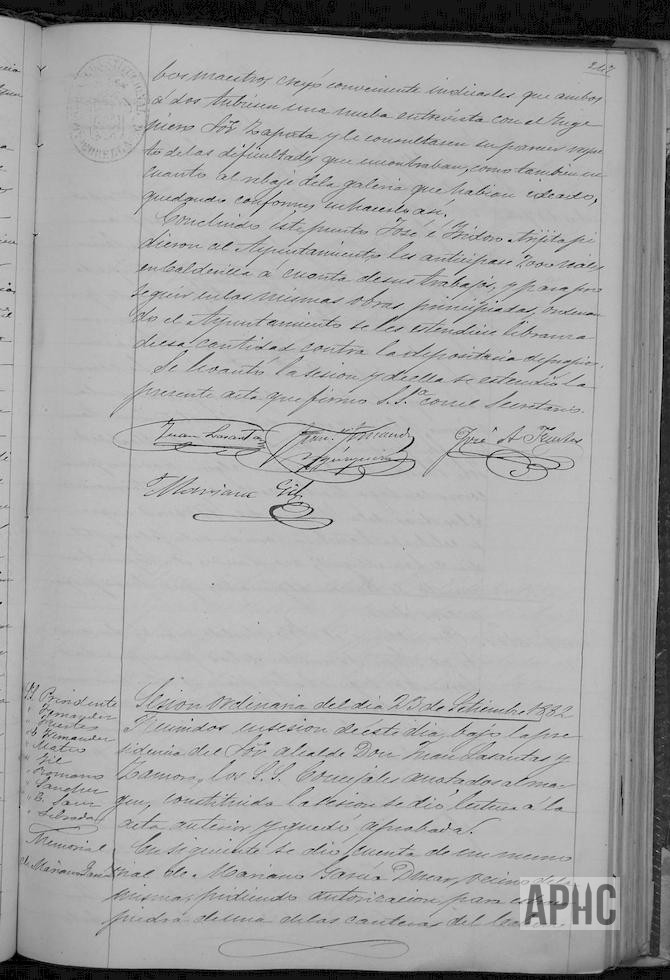 247
bos maestros creyó conveniente indicarles que ambos
á dos tubiesen una nueba entrevista con el Inge
niero Sor. Zapata y le consultasen su parecer respec
to de las dificultades que encontraban, como tambien en
cuanto al rebaje de la galeria que habian ideado,
quedando conformes en hacerlo asi.
Concluido este punto José é Isidoro Arjita pi
dieron al Ayuntamiento les anticipase 2000 reales
en calderilla á cuenta de sus trabajos, y para pro
seguir en las mismas obras principiadas, ordenan
do el Ayuntamiento se les estendiese libranza
de esa cantidad contra la depositaria de propios.
Se levantó la sesion y de ella se estendió la
presente acta que firmó S. Sa. con el Secretario.
Juan Lasantas
José A. Fuertes
Mariano Gil
Sesion ordinaria del dia 23 de Setiembre 1882
Sl. Presidente
" Fernandez
" Fuertes
" Fernandez
" Mateo
" Gil
" Romano
" Sanchez
" Sainz
Reunidos en sesion de este dia, bajo la pre
sidencia del Sor. alcalde Don Juan Lasantas y
Zamora, los S.S. Concejales anotados al mar
gen, constituida la sesion se dió lectura á la
acta anterior y quedó aprobada.
Memorial
de Mariano Garcia
En seguiente se dió cuenta de un memo
rial de Mariano Garcia Duar, vecino de la
misma, pidiendo autorizacion para
piedra de una de las canteras del
APHC